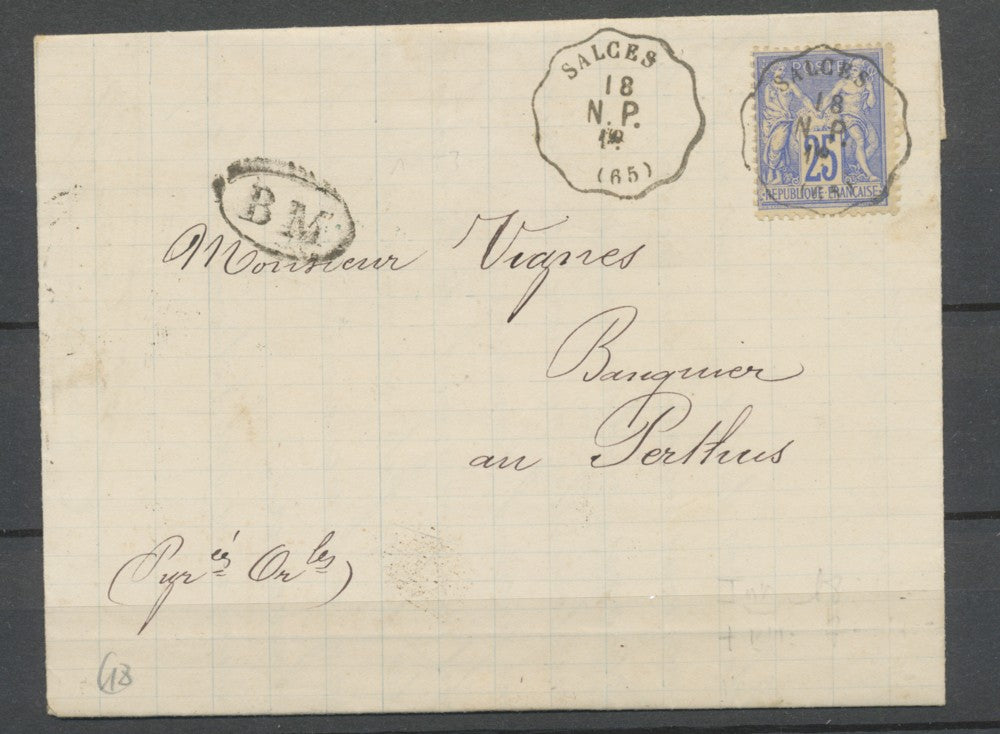 SALCES
18
N. P.
(65)
SALCES
18
N. P.
POSTES
25
REPUBLIQUE FRANCAISE
B M
Monsieur Vignes
Banquier
au Perthus
(Pyr^ées Or^les)
18